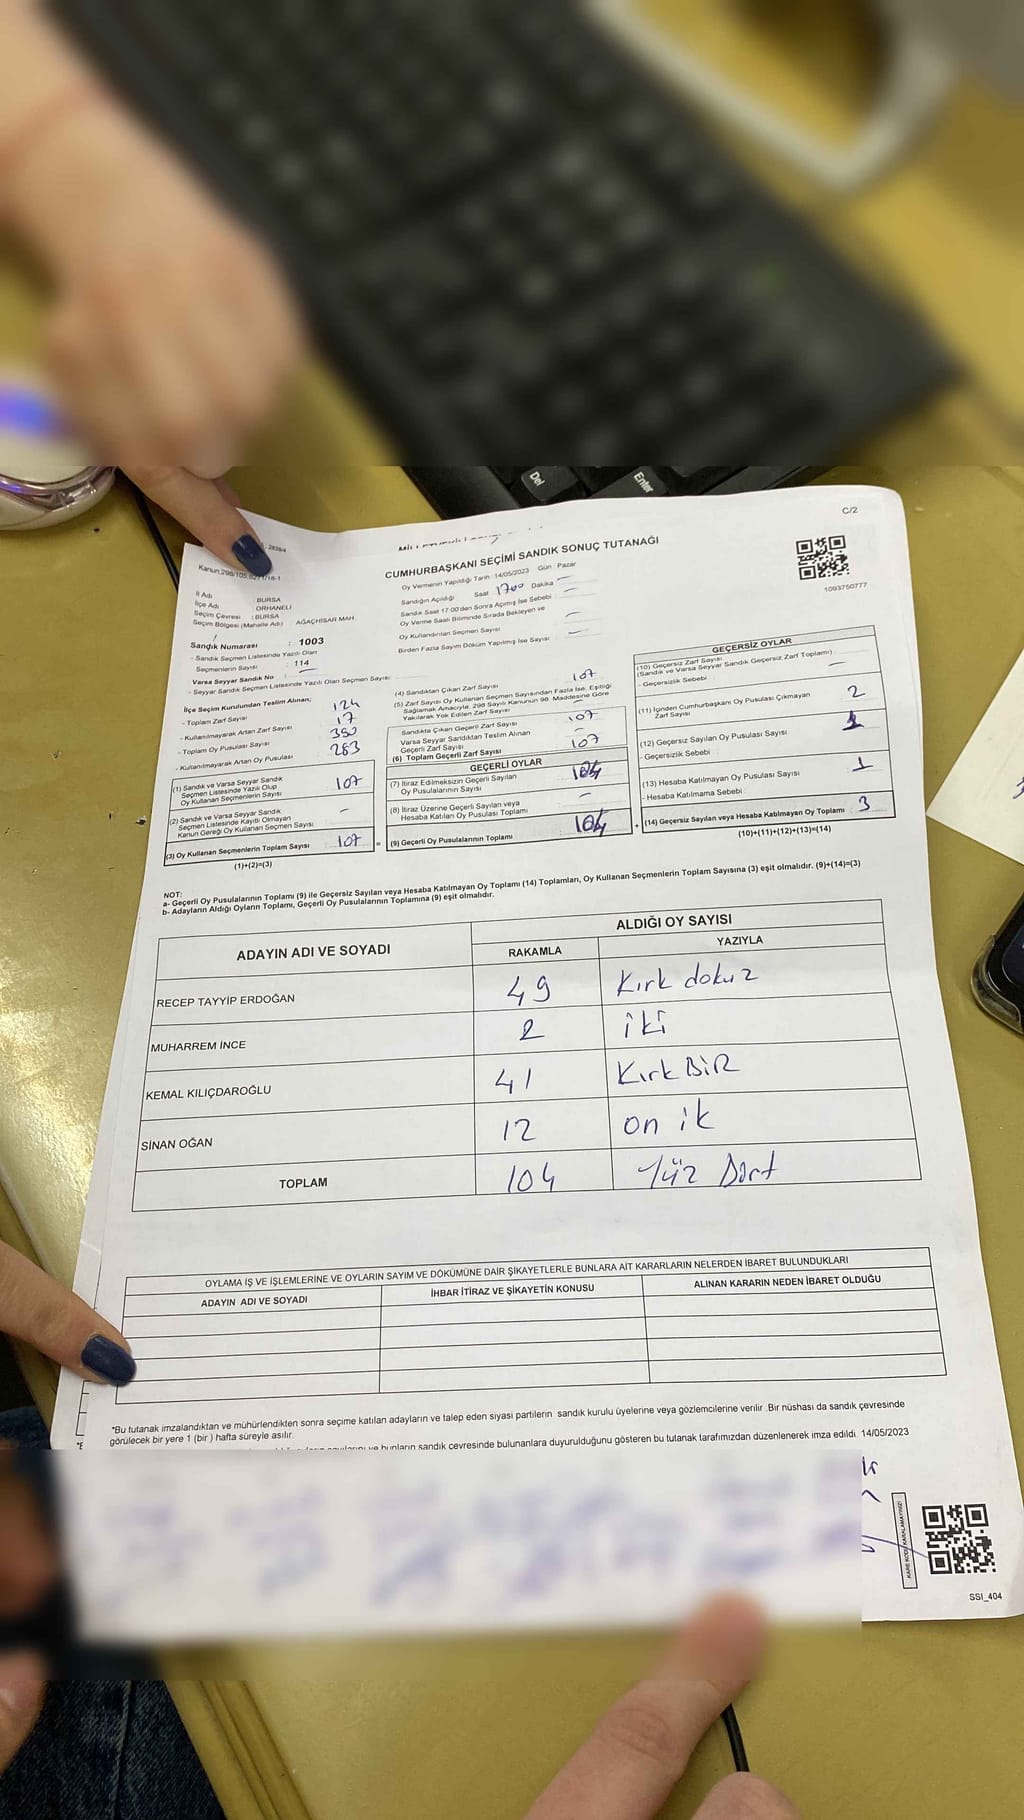 Del
Enter
C/2
CUMHURBAŞKANI SEÇİMİ SANDIK SONUÇ TUTANAĞI
Oy Vermenin Yapıldığı Tarih : 14/05/2023 Gün : Pazar
Sandığın Açıldığı Saat 1700 Dakika
Sandık Saat 17:00'den Sonra Açılmış İse Sebebi :
Oy Verme Saati Bitiminde Sırada Bekleyen ve
Oy Kullandırılan Seçmen Sayısı
Birden Fazla Sayım Döküm Yapılmış İse Sayısı :
1093750777
İl Adı : BURSA
İlçe Adı : ORHANELİ
Seçim Çevresi : BURSA
Seçim Bölgesi (Mahalle Adı) : AĞAÇHİSAR MAH.
Sandık Numarası : 1003
- Sandık Seçmen Listesinde Yazılı Olan
Seçmenlerin Sayısı : 114
Varsa Seyyar Sandık No
- Seyyar Sandık Seçmen Listesinde Yazılı Olan Seçmen Sayısı
İlçe Seçim Kurulundan Teslim Alınan;
- Toplam Zarf Sayısı 124
- Kullanılmayarak Artan Zarf Sayısı 17
- Toplam Oy Pusulası Sayısı
- Kullanılmayarak Artan Oy Pusulası
(1) Sandık ve Varsa Seyyar Sandık
Seçmen Listesinde Yazılı Olup
Oy Kullanan Seçmenlerin Sayısı 107
(2) Sandık ve Varsa Seyyar Sandık
Seçmen Listesinde Kayıtlı Olmayan
Kanun Gereği Oy Kullanan Seçmen Sayısı -
(3) Oy Kullanan Seçmenlerin Toplam Sayısı 107
(1)+(2)=(3)
(4) Sandıktan Çıkan Zarf Sayısı 107
(5) Zarf Sayısı Oy Kullanan Seçmen Sayısından Fazla İse, Eşitliği
Sağlamak Amacıyla, 298 Sayılı Kanunun 98. Maddesine Göre
Yakılarak Yok Edilen Zarf Sayısı -
Sandıkta Çıkan Geçerli Zarf Sayısı 107
Varsa Seyyar Sandıktan Teslim Alınan
Geçerli Zarf Sayısı -
(6) Toplam Geçerli Zarf Sayısı 107
GEÇERLİ OYLAR
(7) İtiraz Edilmeksizin Geçerli Sayılan
Oy Pusulalarının Sayısı 104
(8) İtiraz Üzerine Geçerli Sayılan veya
Hesaba Katılan Oy Pusulası Toplamı -
= (9) Geçerli Oy Pusulalarının Toplamı 104
GEÇERSİZ OYLAR
(10) Geçersiz Zarf Sayısı
(Sandık ve Varsa Seyyar Sandık Geçersiz Zarf Toplamı) : -
- Geçersizlik Sebebi
(11) İçinden Cumhurbaşkanı Oy Pusulası Çıkmayan
Zarf Sayısı 2
(12) Geçersiz Sayılan Oy Pusulası Sayısı
- Geçersizlik Sebebi
(13) Hesaba Katılmayan Oy Pusulası Sayısı 1
- Hesaba Katılmama Sebebi
+ (14) Geçersiz Sayılan veya Hesaba Katılmayan Oy Toplamı : 3
(10)+(11)+(12)+(13)=(14)
NOT:
a- Geçerli Oy Pusulalarının Toplamı (9) ile Geçersiz Sayılan veya Hesaba Katılmayan Oy Toplamı (14) Toplamları, Oy Kullanan Seçmenlerin Toplam Sayısına (3) eşit olmalıdır. (9)+(14)=(3)
b- Adayların Aldığı Oyların Toplamı, Geçerli Oy Pusulalarının Toplamına (9) eşit olmalıdır.
ADAYIN ADI VE SOYADI
ALDIĞI OY SAYISI
RAKAMLA YAZIYLA
RECEP TAYYİP ERDOĞAN 49 Kırk dokuz
MUHARREM İNCE 2 iki
KEMAL KILIÇDAROĞLU 41 Kırk BiR
SİNAN OĞAN 12 on ik
TOPLAM 104 Yüz Dört
OYLAMA İŞ VE İŞLEMLERİNE VE OYLARIN SAYIM VE DÖKÜMÜNE DAİR ŞİKAYETLERLE BUNLARA AİT KARARLARIN NELERDEN İBARET BULUNDUKLARI
ADAYIN ADI VE SOYADI İHBAR İTİRAZ VE ŞİKAYETİN KONUSU ALINAN KARARIN NEDEN İBARET OLDUĞU
*Bu tutanak imzalandıktan ve mühürlendikten sonra seçime katılan adayların ve talep eden siyasi partilerin sandık kurulu üyelerine veya gözlemcilerine verilir. Bir nüshası da sandık çevresinde
görülecek bir yere 1 (bir) hafta süreyle asılır.
ve bunların sandık çevresinde bulunanlara duyurulduğunu gösteren bu tutanak tarafımızdan düzenlenerek imza edildi. 14/05/2023
KARE KODU KARALAMAYINIZ!
SSI_404